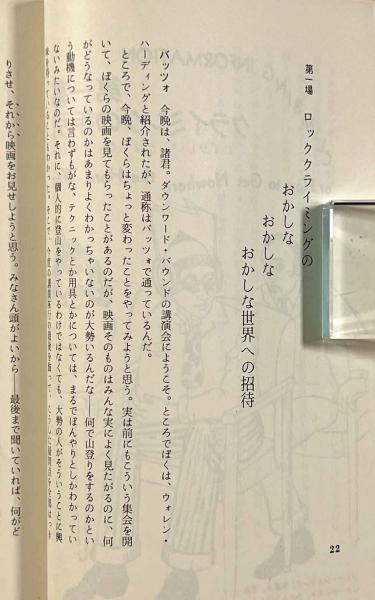 第一場　ロッククライミングの
おかしな
おかしな
おかしな世界への招待
バッツォ　今晩は、諸君。ダウンワード・バウンドの講演会にようこそ。ところでぼくは、ウォレン・
ハーディングと紹介されたが、通称はバッツォで通っているんだ。
ところで、今晩、ぼくらはちょっと変わったことをやってみようと思う。実は前にもこういう集会を開
いて、ぼくらの映画を見てもらったことがあるのだが、映画そのものはみんな実によく見たがるのに、何
がどうなっているのかはあまりよくわかっちゃいないのが大勢いるんだな——何で山登りをするのかとい
う動機については言わずもがな、テクニックとか用具とかについては、まるでぼんやりとしかわかってい
ないみたいなのだ。それに、個人的に登山をやっているわけではなくても、大勢の人がそういうことに興
味を持っていることもわかった。そこで、
りさせ、それから映画をお見せしようと思う。みなさん頭がよいから——最後まで聞いていれば、何がど
22